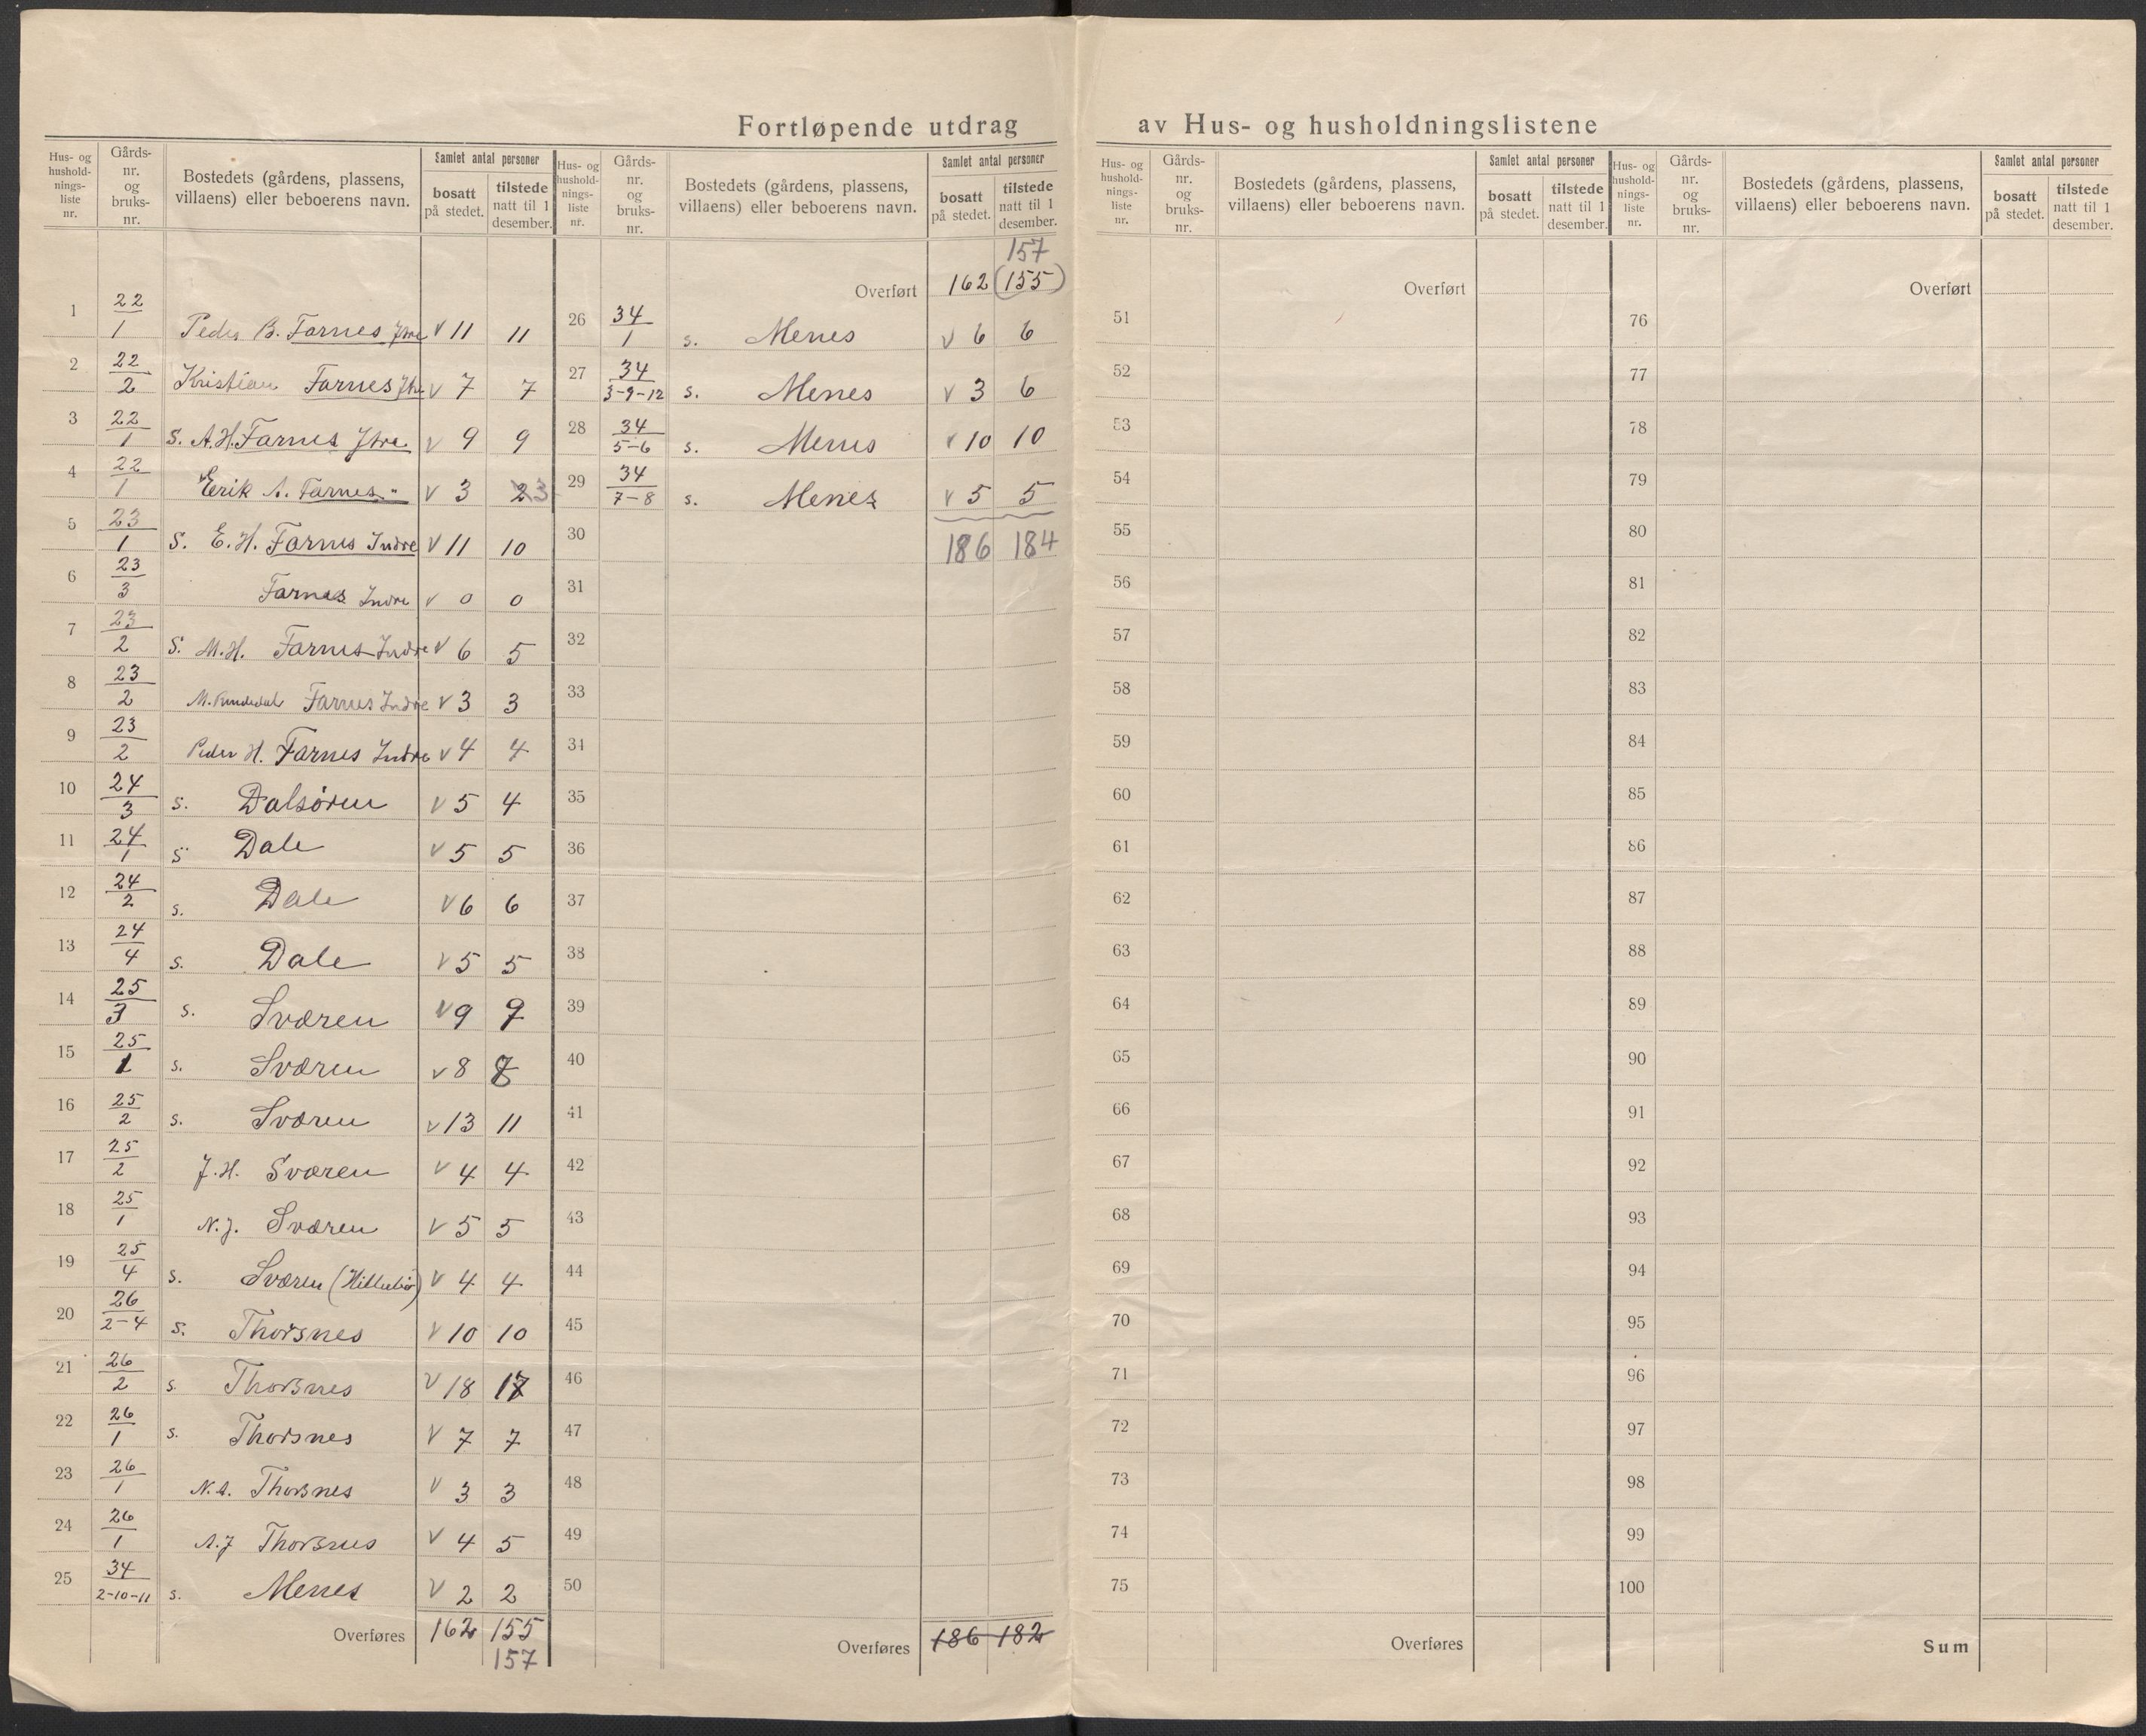 Fortløpende utdrag av Hus- og husholdningslistene
Hus- og hushold-nings-liste nr. | Gårds-nr. og bruks-nr. | Bostedets (gårdens, plassens, villaens) eller beboerens navn. | Samlet antal personer | bosatt på stedet. | tilstede natt til 1 desember.
1 22/1 Peder B. Farnes Ytre v 11 11
2 22/2 Kristian Farnes Ytre v 7 7
3 22/1 S. A.H. Farnes Ytre v 9 9
4 22/1 Erik A. Farnes " v 3 2 3
5 23/1 S. E.H. Farnes Indre v 11 10
6 23/3 Farnes Indre v 0 0
7 23/2 S. M.H. Farnes Indre v 6 5
8 23/2 Farnes Indre v 3 3
9 23/2 Peder H. Farnes Indre v 4 4
10 24/3 s. Dalsøren v 5 4
11 24/1 s Dale v 5 5
12 24/2 s. Dale v 6 6
13 24/4 s. Dale v 5 5
14 25/3 s. Sværen v 9
15 25/1 s. Sværen v 8
16 25/2 s. Sværen v 13 11
17 25/2 J.H. Sværen v 4 4
18 25/1 N.J. Sværen v 5 5
19 25/4 s. Sværen v 4 4
20 26/2-4 s. Thorsnes v 10 10
21 26/2 s. Thorsnes v 18 17
22 26/1 s. Thorsnes v 7 7
23 26/1 N.A. Thorsnes v 3 3
24 26/1 A.J Thorsnes v 4 5
25 34/2-10-11 s. Menes v 2 2
Overføres 162 155
157
Hus- og hushold-nings-liste nr. | Gårds-nr. og bruks-nr. | Bostedets (gårdens, plassens, villaens) eller beboerens navn. | Samlet antal personer | bosatt på stedet. | tilstede natt til 1 desember.
157
Overført 162 (155)
26 34/1 s. Menes v 6 6
27 34/3-9-12 s. Menes v 3 6
28 34/5-6 s. Menes v 10 10
29 34/7-8 s. Menes v 5 5
30 186 184
31
32
33
34
35
36
37
38
39
40
41
42
43
44
45
46
47
48
49
50
Overføres 186 182
Hus- og hushold-nings-liste nr. | Gårds-nr. og bruks-nr. | Bostedets (gårdens, plassens, villaens) eller beboerens navn. | Samlet antal personer | bosatt på stedet. | tilstede natt til 1 desember.
Overført
51
52
53
54
55
56
57
58
59
60
61
62
63
64
65
66
67
68
69
70
71
72
73
74
75
Overføres
Hus- og hushold-nings-liste nr. | Gårds-nr. og bruks-nr. | Bostedets (gårdens, plassens, villaens) eller beboerens navn. | Samlet antal personer | bosatt på stedet. | tilstede natt til 1 desember.
Overført
76
77
78
79
80
81
82
83
84
85
86
87
88
89
90
91
92
93
94
95
96
97
98
99
100
Sum